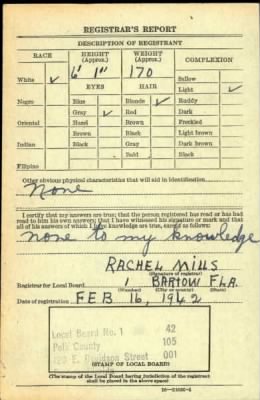 REGISTRAR'S REPORT
DESCRIPTION OF REGISTRANT
RACE HEIGHT (Approx.) WEIGHT (Approx.) COMPLEXION
6' 1" 170
White ✓ EYES HAIR Sallow
Light ✓
Negro Blue Blonde ✓ Ruddy
Gray ✓ Red Dark
Oriental Hazel Brown Freckled
Brown Black Light brown
Indian Black Gray Dark brown
Bald Black
Filipino
Other obvious physical characteristics that will aid in identification
None
I certify that my answers are true; that the person registered has read or has had
read to him his own answers; that I have witnessed his signature or mark and that
all of his answers of which I have knowledge are true, except as follows:
none to my knowledge
RACHEL Mills
(Signature of registrar)
Registrar for Local Board BARTOW FLA.
(Number) (City or county) (State)
Date of registration FEB 16, 1942
Local Board No. 1 42
Polk County 105
E. Davidson Street 001
(STAMP OF LOCAL BOARD)
(The stamp of the Local Board having jurisdiction of the registrant
shall be placed in the above space)